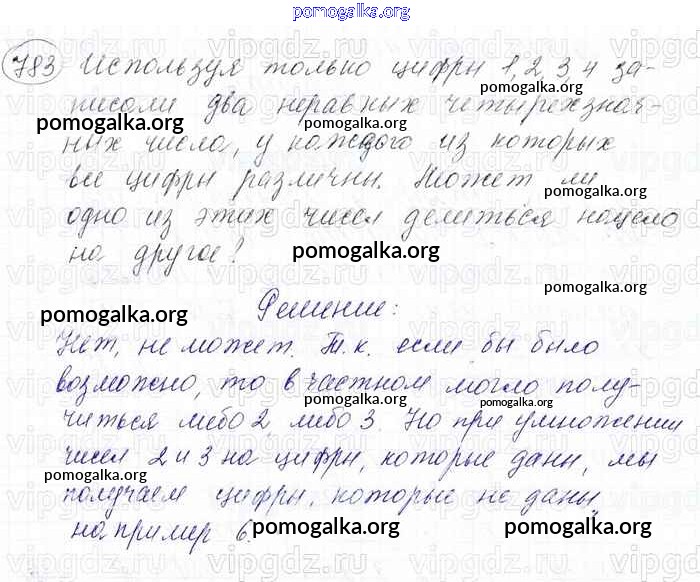 pomogalka.org
783 Используя только цифры 1, 2, 3, 4 за-
pomogalka.org
писали два неравных четырехзнач-
pomogalka.org pomogalka.org
ных числа, у каждого из которых
pomogalka.org
все цифры различны. Может ли
pomogalka.org
одно из этих чисел делиться нацело
на другое?
pomogalka.org pomogalka.org
pomogalka.org
Решение:
pomogalka.org
Нет, не может. Т.к. если бы было
pomogalka.org
возможно, то в частном могло полу-
pomogalka.org pomogalka.org
читься либо 2, либо 3. Но при умножении
pomogalka.org
чисел 2 и 3 на цифры, которые даны, мы
pomogalka.org
получаем цифры, которые не даны,
pomogalka.org
например 6.
pomogalka.org pomogalka.org